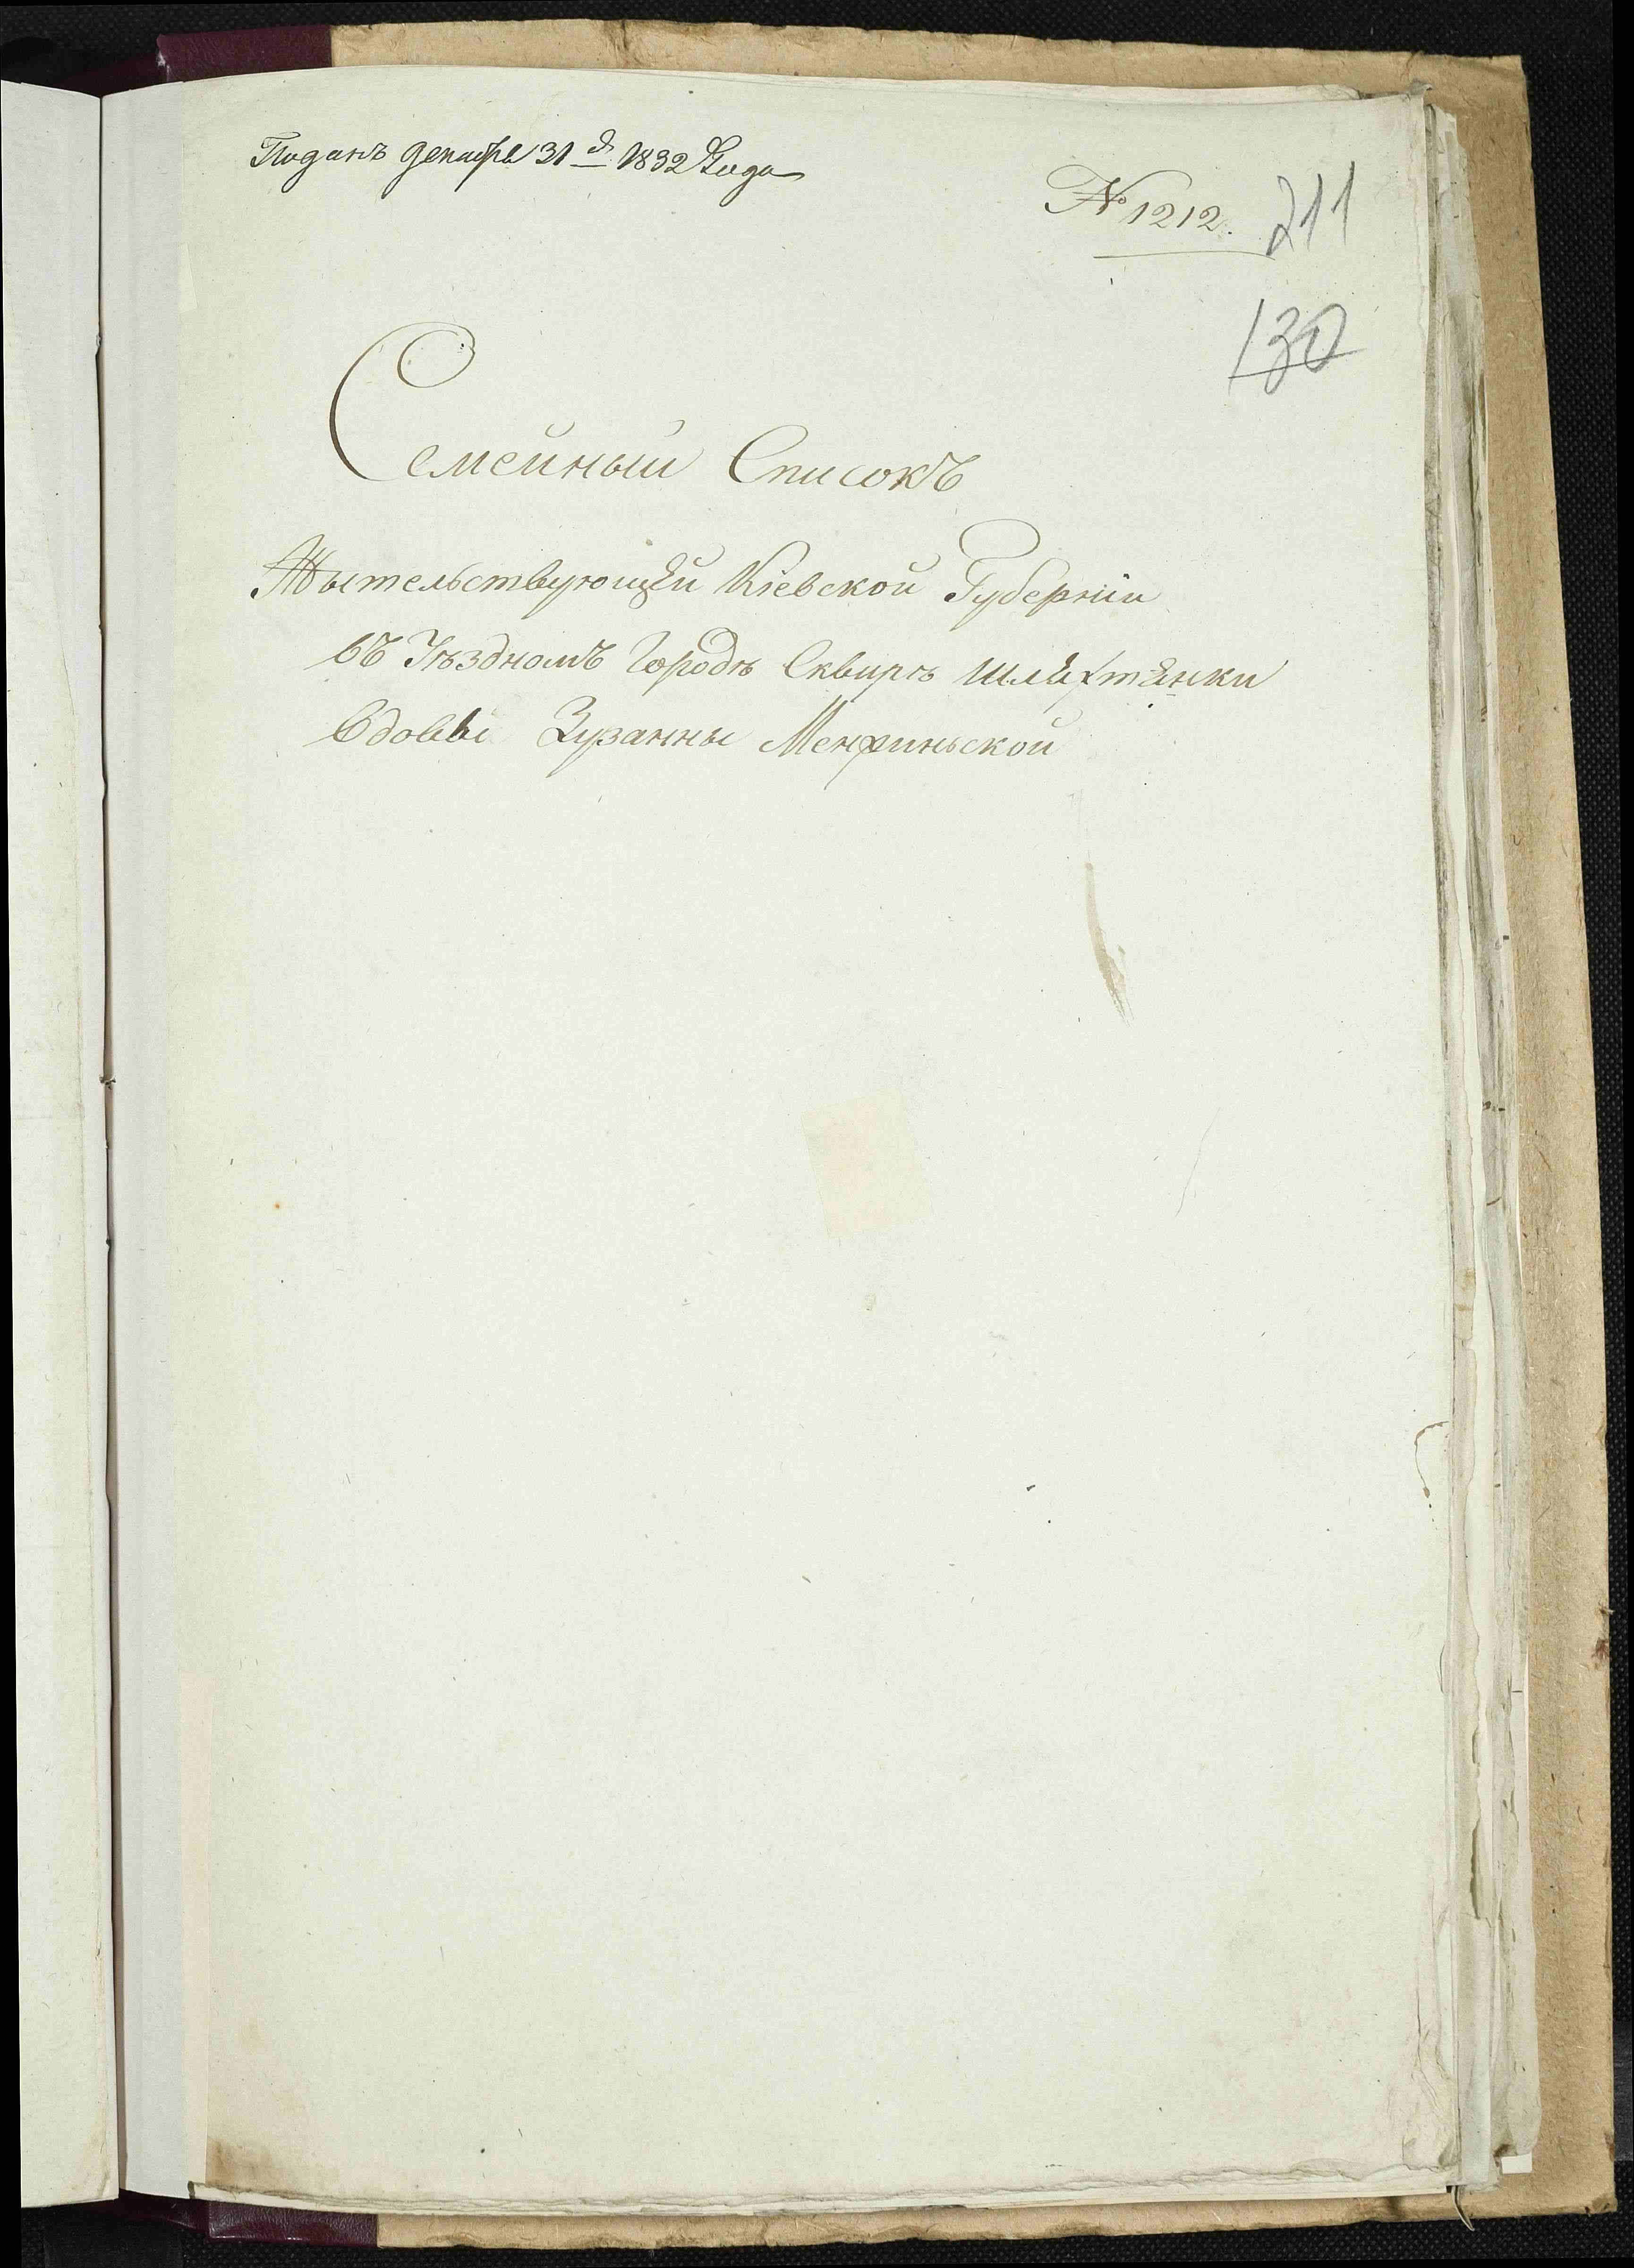 Поданъ декабря 31 д. 1832 Года
№ 1212. 211
130
Семейный Списокъ
Жытельствующей Кіевской Губерніи
въ Уѣздномъ Городѣ Сквирѣ шляхтянки
Вдовы Зузанны Менжиньской